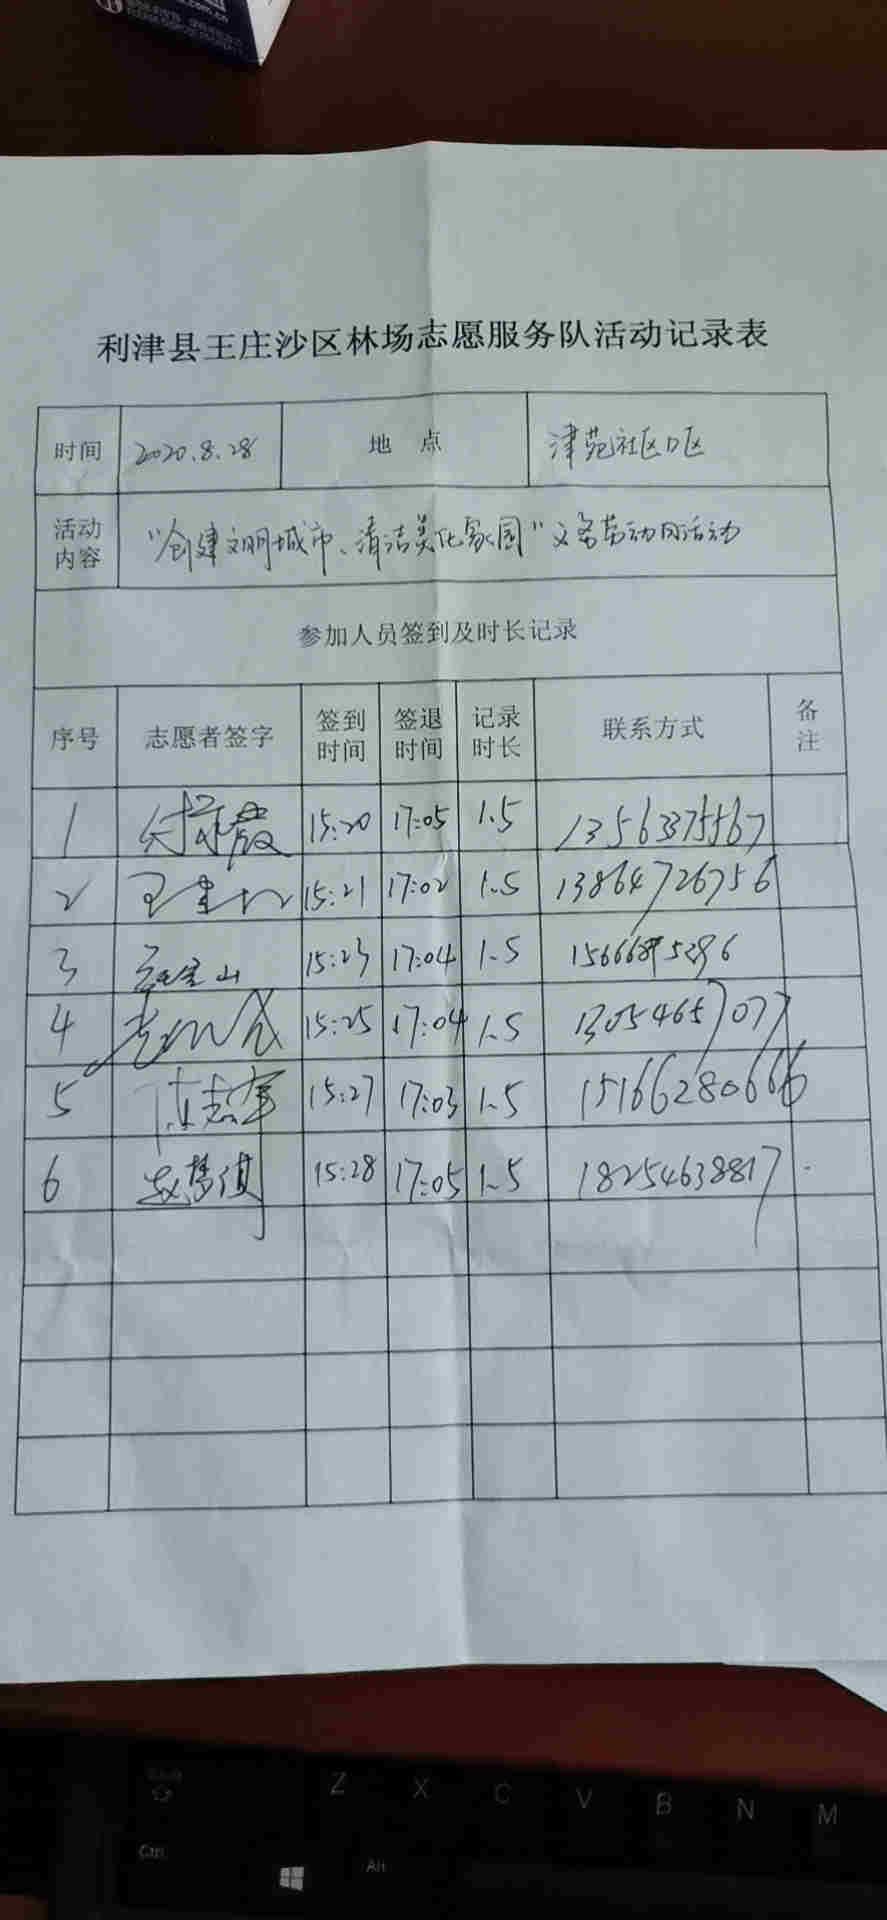 利津县王庄沙区林场志愿服务队活动记录表
时间 2020.8.28 地点 津苑社区口区
活动内容 "创建文明城市、清洁美化家园"义务劳动日活动
参加人员签到及时长记录
序号 志愿者签字 签到时间 签退时间 记录时长 联系方式 备注
1 15:20 17:05 1.5 13563375567
2 15:21 17:02 1.5 13864726756
3 15:23 17:04 1.5
4 15:25 17:04 1.5 13054657077
5 陈志军 15:27 17:03 1.5 15166280666
6 赵梦倩 15:28 17:05 1.5 18254638817
Z X C V B N M
Ctrl Alt